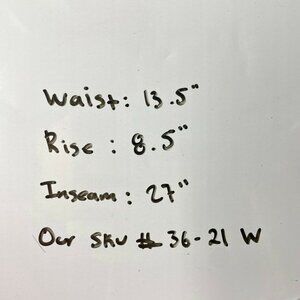 Waist: 13.5"
Rise : 8.5"
Inseam : 27"
Our SKU # 36-21 W